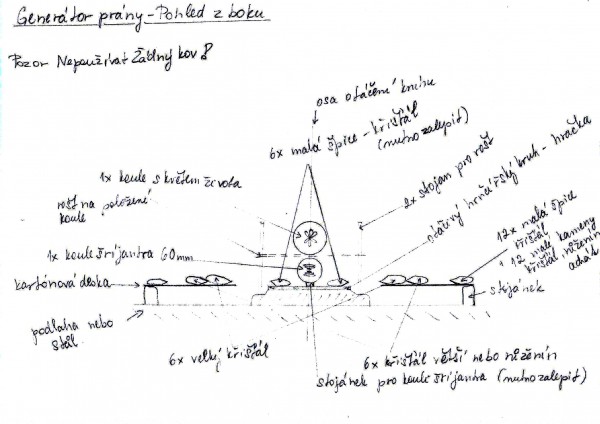 Generátor prány - Pohled z boku
Pozor Nepoužívat Žádný kov!
osa otáčení kruhu
6x malá špice - křišťál
(nutno zalepit)
1x koule s květem života
rošt na položení
koule
2x stojan pro rošt
otáčivý hrnčířský kruh - hračka
1x koule šrijantra 60mm
12x malá špice
křišťál
+ 12 malé kameny
křišťál růženín
kartónová deska
stojánek
podlaha nebo
stůl
6x velký křišťál
6x křišťál větší nebo růženín
stojánek pro koule šrijantra (nutno zalepit)